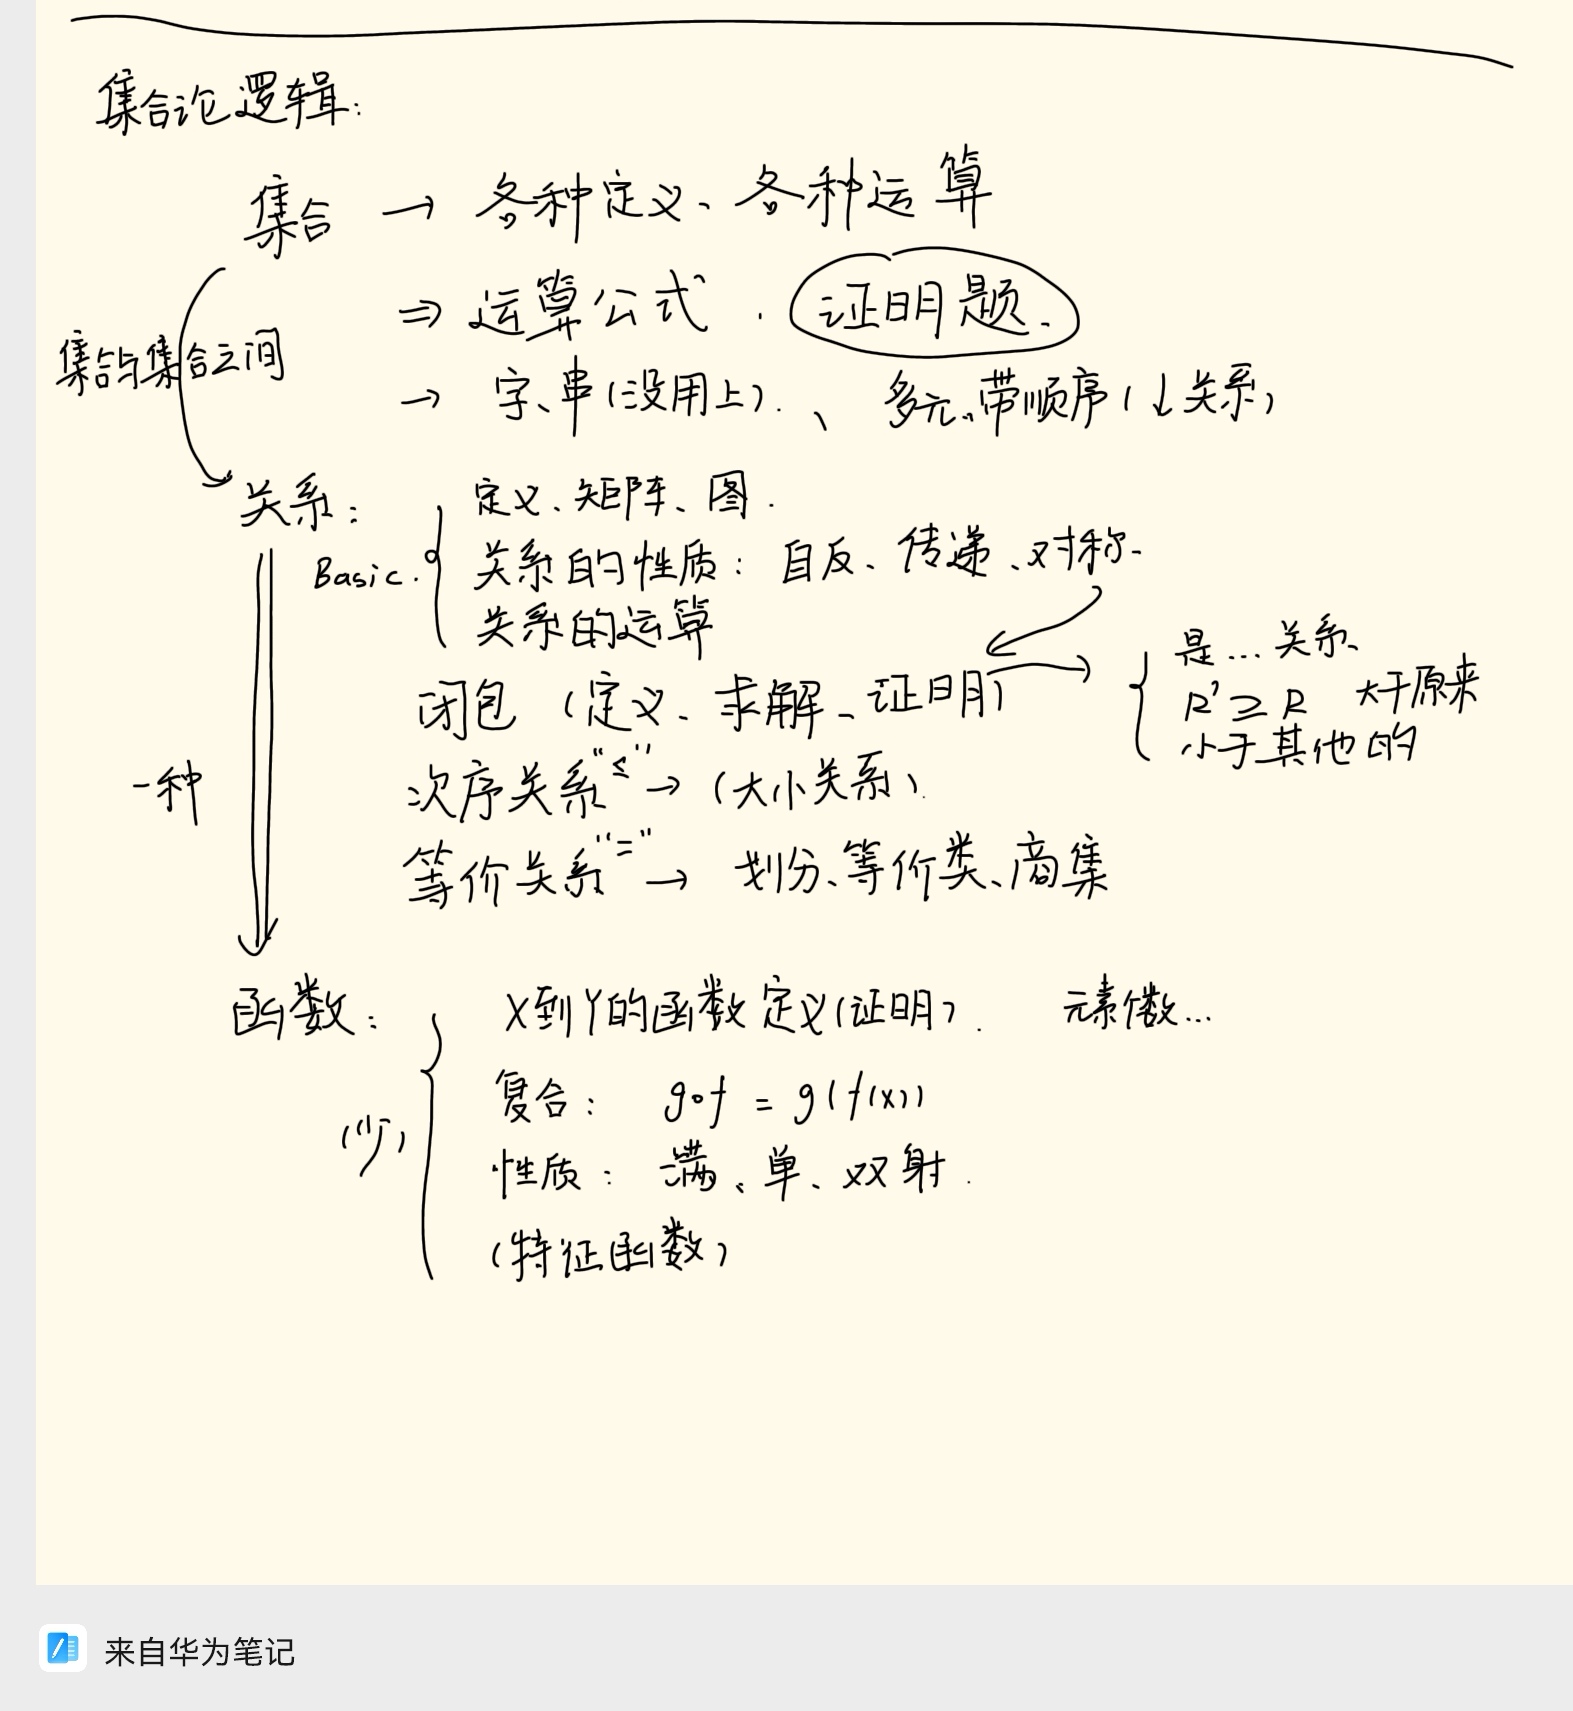 集合论逻辑:
集合 → 各种定义、各种运算
⇒ 运算公式. 证明题.
集合与集合之间
→ 字、串(没用上).、多元、带顺序(↓关系)
关系:
Basic.
定义、矩阵、图.
关系的性质: 自反、传递、对称.
关系的运算
闭包 (定义、求解、证明) →
是...关系、
R' ≥ R 大于原来
小于其他的
次序关系"≤" → (大小关系).
一种
等价关系"=" → 划分、等价类、商集
函数:
X到Y的函数定义(证明). 元素个数...
复合: g∘f = g(f(x))
性质: 满、单、双射.
(特征函数)
来自华为笔记